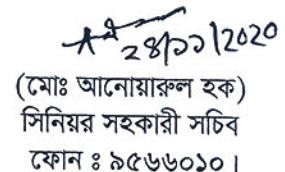 ২৪/১১/২০২০
(মোঃ আনোয়ারুল হক)
সিনিয়র সহকারী সচিব
ফোন ঃ ৯৫৬৬০১০।